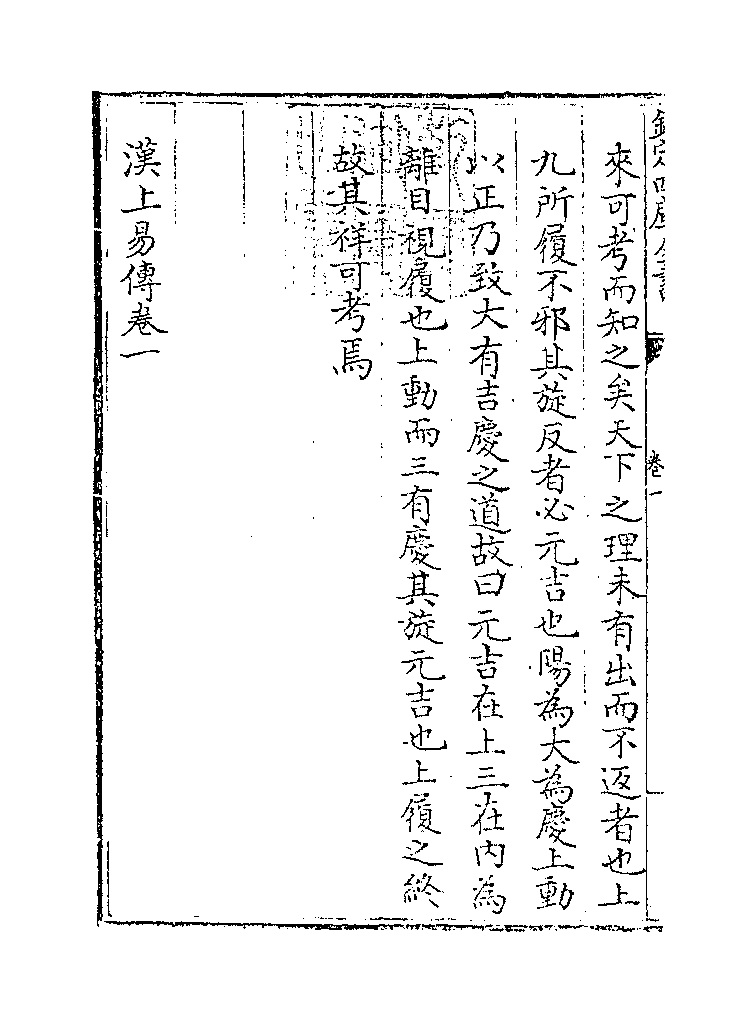 欽定四庫全書
卷一
來可考而知之矣天下之理未有出而不返者也上
九所履不邪其旋反者必元吉也陽為大為慶上動
以正乃致大有吉慶之道故曰元吉在上三在內為
離目視履也上動而三有慶其旋元吉也上履之終
故其祥可考焉
漢上易傳卷一